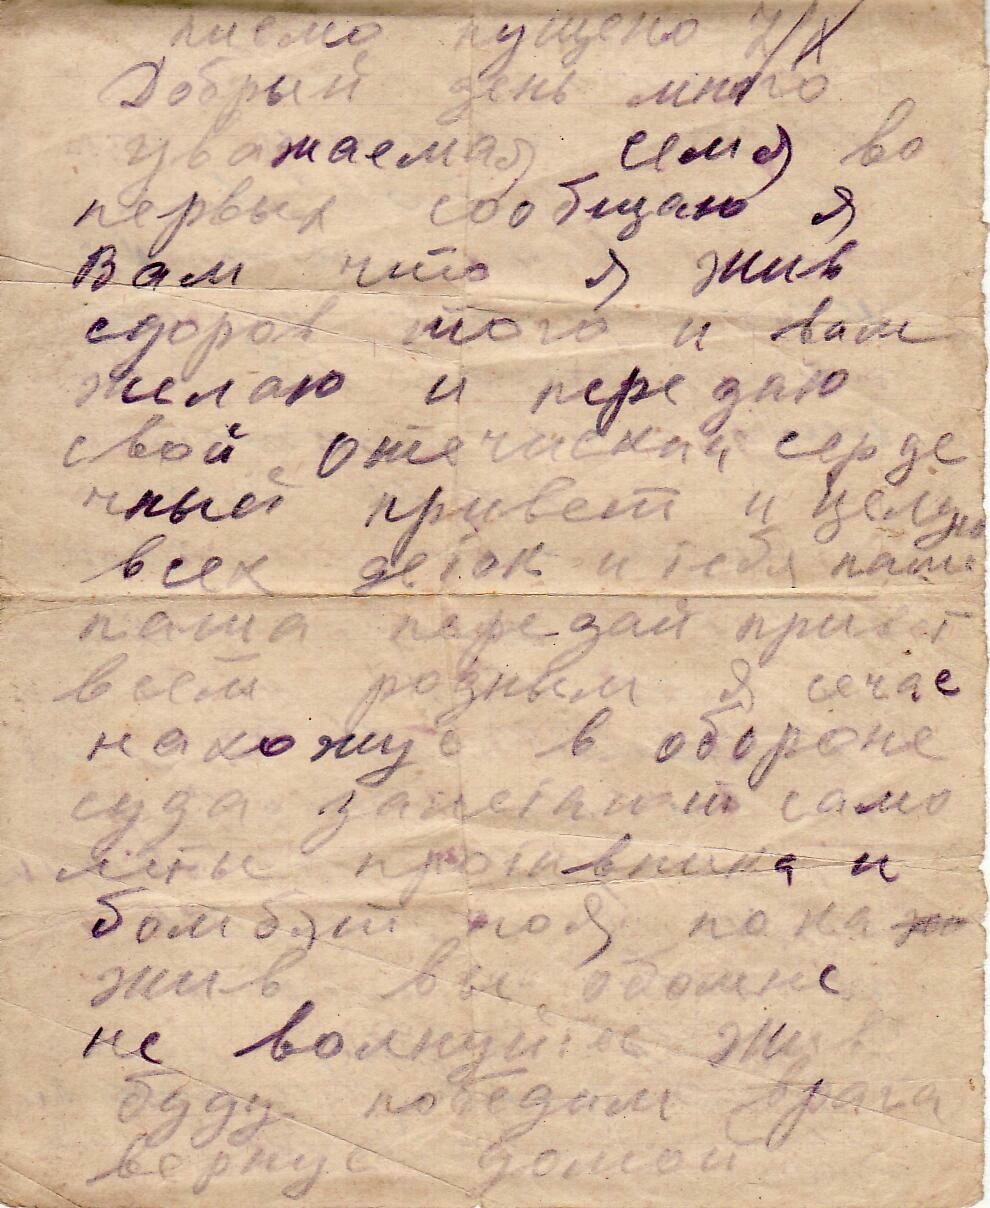 писмо пущено 7/X
Добрый день много
уважаемая семя во
первых сообщаю я
Вам что я жив
сдоров того и вам
желаю и передаю
свой отечиский серде
чный привет и целую
всех деток и тебя паша
паша передай привет
всем родным я сечас
нахожус в обороне
суда залетают само
лёты противника и
бомбят но я пока
жив вы обомне
не волнуйтес жив
буду победим врага
вернус домой